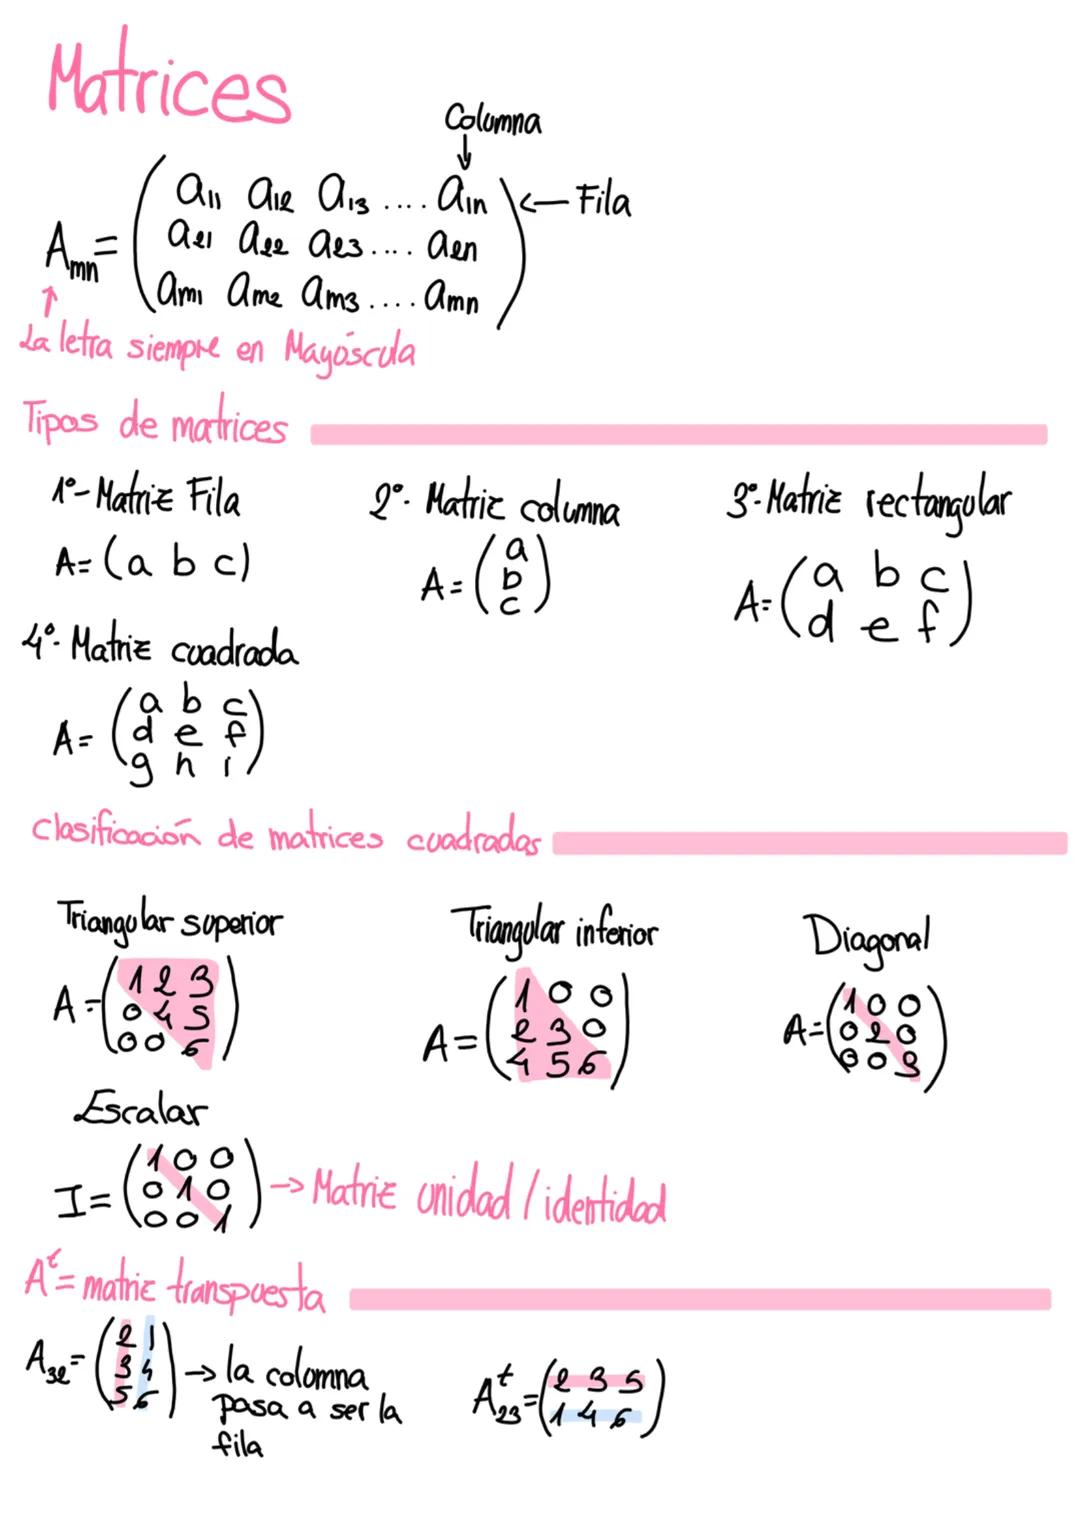 Matrices
Columna
↓
Amn = ( a11 a12 a13 .... a1n ) ← Fila
a21 a22 a23 .... a2n
am1 am2 am3 .... amn
↑
La letra siempre en Mayúscula
Tipos de matrices
1º- Matriz Fila 2º- Matriz columna 3º- Matriz rectangular
A = (a b c) A = ( a A = ( a b c
b d e f )
c )
4º- Matriz cuadrada
A = ( a b c
d e f
g h i )
Clasificación de matrices cuadradas
Triangular superior Triangular inferior Diagonal
A = ( 1 2 3 A = ( 1 0 0 A = ( 1 0 0
0 4 5 2 3 0 0 2 0
0 0 6 ) 4 5 6 ) 0 0 3 )
Escalar
I = ( 1 0 0
0 1 0 → Matriz unidad / identidad
0 0 1 )
Aᵗ = matriz transpuesta
A32 = ( 2 1
3 4 → la columna
5 6 ) pasa a ser la
fila
Aᵗ23 = ( 2 3 5
1 4 6 )